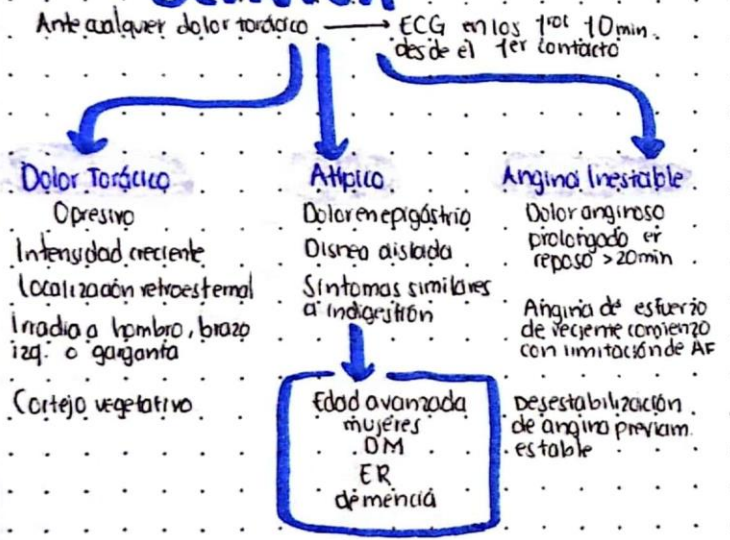 Ante cualquier dolor torácico → ECG en los 1ros 10 min.
desde el 1er contacto
Dolor Torácico
Opresivo
Intensidad creciente
Localización retroesternal
Irradia a hombro, brazo
izq. o garganta
Cortejo vegetativo
Atípico
Dolor en epigástrio
Disnea aislada
Síntomas similares
a indigestión
Edad avanzada
mujeres
DM
ER
demencia
Angina Inestable
Dolor anginoso
prolongado en
reposo >20min
Angina de esfuerzo
de reciente comienzo
con limitación de AF
Desestabilización
de angina previam.
estable